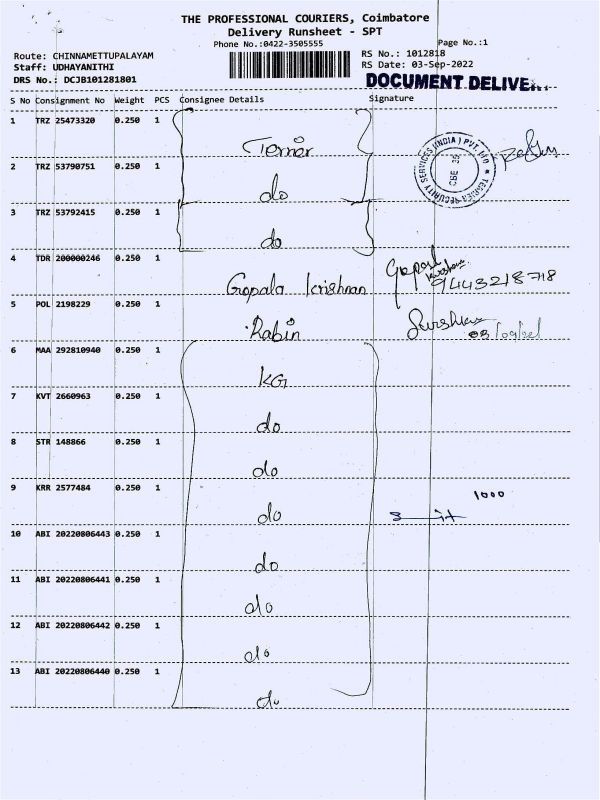 THE PROFESSIONAL COURIERS, Coimbatore
Delivery Runsheet - SPT
Phone No.:0422-3505555 Page No.:1
Route: CHINNAMETTUPALAYAM RS No.: 1012818
Staff: UDHAYANITHI RS Date: 03-Sep-2022
DRS No.: DCJB101281801 DOCUMENT DELIVER
S No Consignment No Weight PCS Consignee Details Signature
1 TRZ 25473320 0.250 1
SECURITY SERVICES (INDIA) PVT LTD
CBE 35
2 TRZ 53790751 0.250 1
do
3 TRZ 53792415 0.250 1
do
4 TDR 200000246 0.250 1
Gopala krishnan Gopal krishnan 9443218718
5 POL 2198229 0.250 1
Rabin 03/09/22
6 MAA 292810940 0.250 1
KG
7 KVT 2660963 0.250 1
do
8 STR 148866 0.250 1
do
9 KRR 2577484 0.250 1
1000
do
10 ABI 20220806443 0.250 1
do
11 ABI 20220806441 0.250 1
do
12 ABI 20220806442 0.250 1
do
13 ABI 20220806440 0.250 1
do